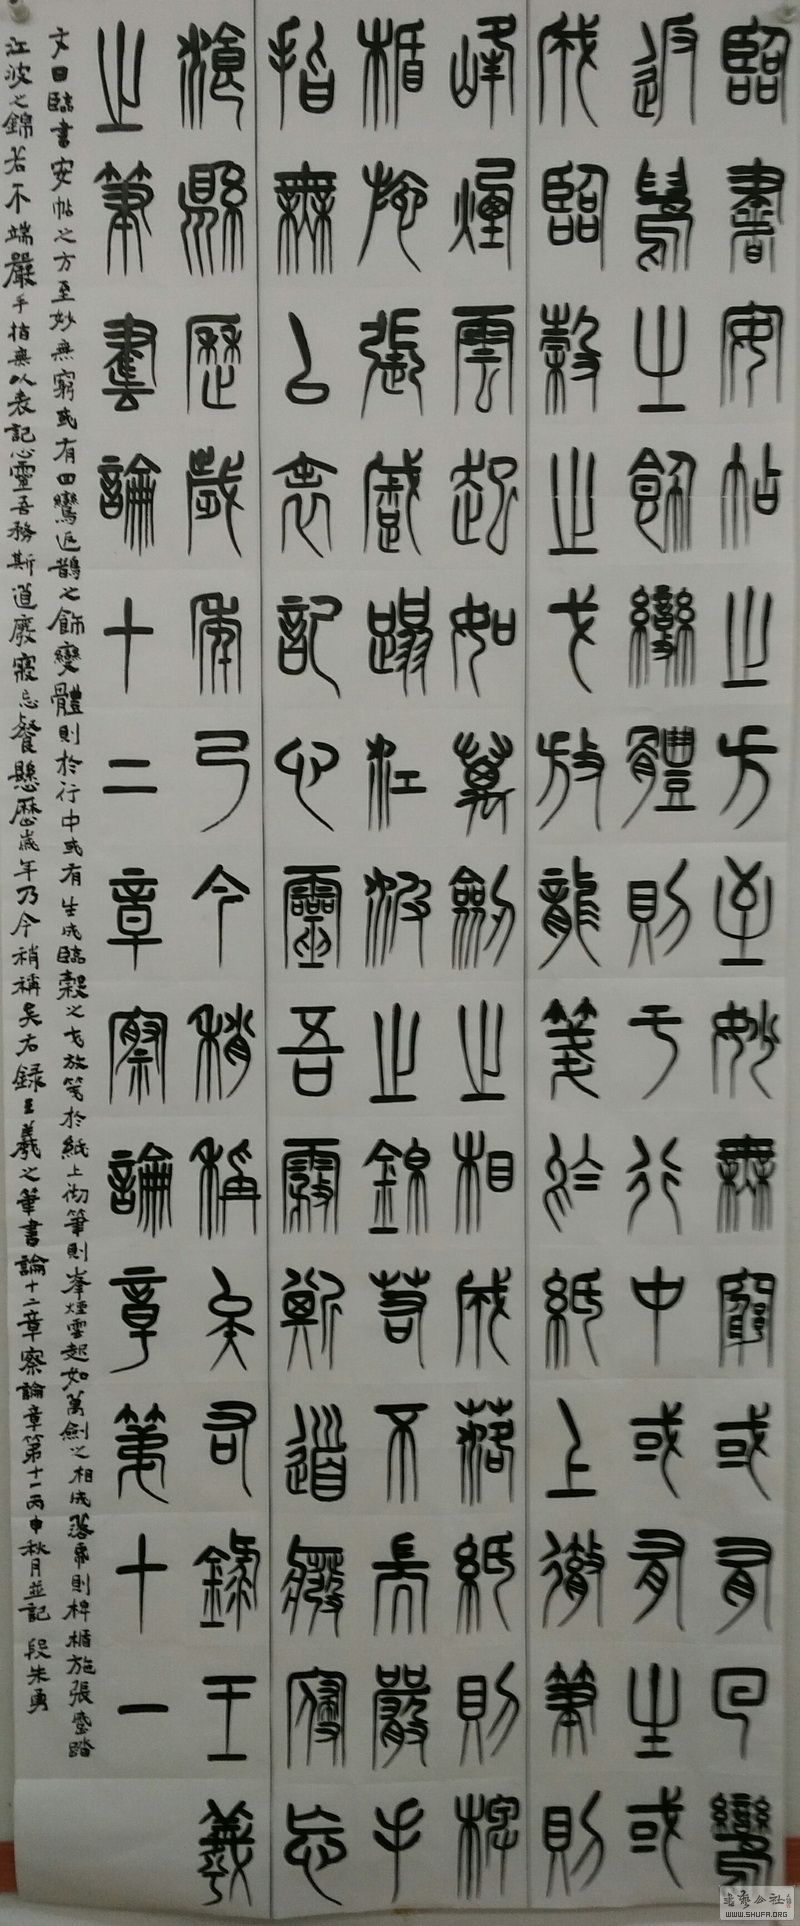 臨書安帖之方至妙無窮或有回鸞
返鵲之飾變體則于行中或有生或
成臨穀之戈放龍箋於紙上徹筆則
峰煙雲起如萬劍之相成落紙則椑
楯施張蹙踏江波之錦若不端嚴手
指無以表記心靈吾務斯道廢寢忘
飡懸歷歲年乃今稍稱矣右錄王羲
之筆書論十二章察論章第十一
文曰臨書安帖之方至妙無窮或有回鸞返鵲之飾變體則於行中或有生成臨穀之戈放箋於紙上彻筆則峯煙雲起如萬劍之相成落帛則椑楯施張蹙踏
江波之錦若不端嚴手指無以表記心靈吾務斯道廢寢忘餐懸歷歲年乃今稍稱矣右錄王羲之筆書論十二章察論章第十一丙申秋月並記 段朱勇
书艺公社
WWW.SHUFA.ORG